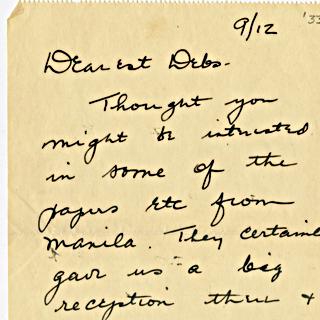 9/12 '33
Dearest Debs-
Thought you
might be intrested
in some of the
papers etc from
Manila. They certainl
gave us a big
reception there &